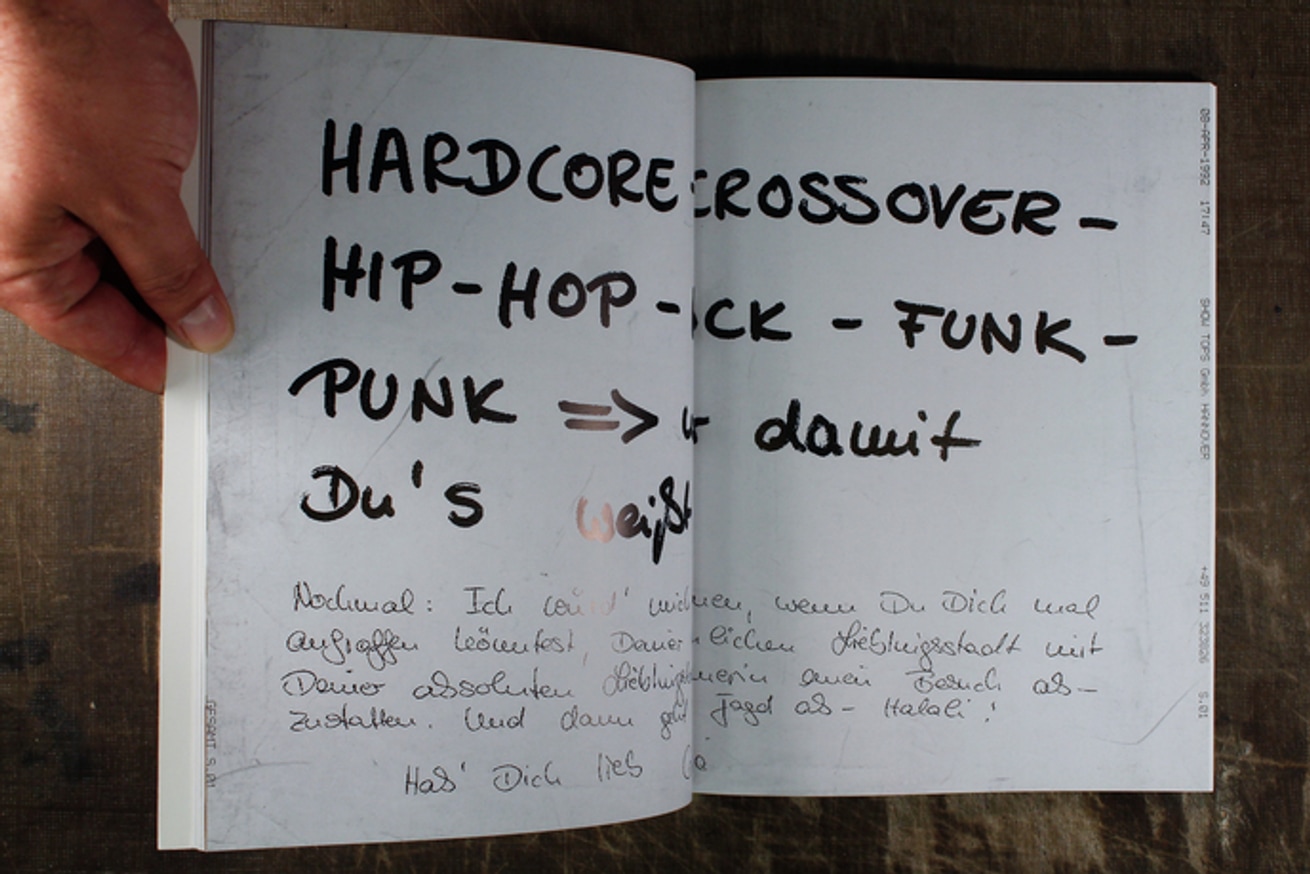 HARDCORE CROSSOVER -
HIP-HOP - CK - FUNK -
PUNK => damit
Du's weißt
Nochmal: Ich würd' wenn Du Dich mal
aufraffen könntest, Deiner Lieblingsstadt mit
Deiner absoluten einen Besuch ab-
zustatten. Und dann geht Jagd ab - Halali!
Hab' Dich lieb
08-APR-1992 17:47
SHOW TOPS GmbH HANNOVER
+49 511 323026
S.01
GESAMT S.01